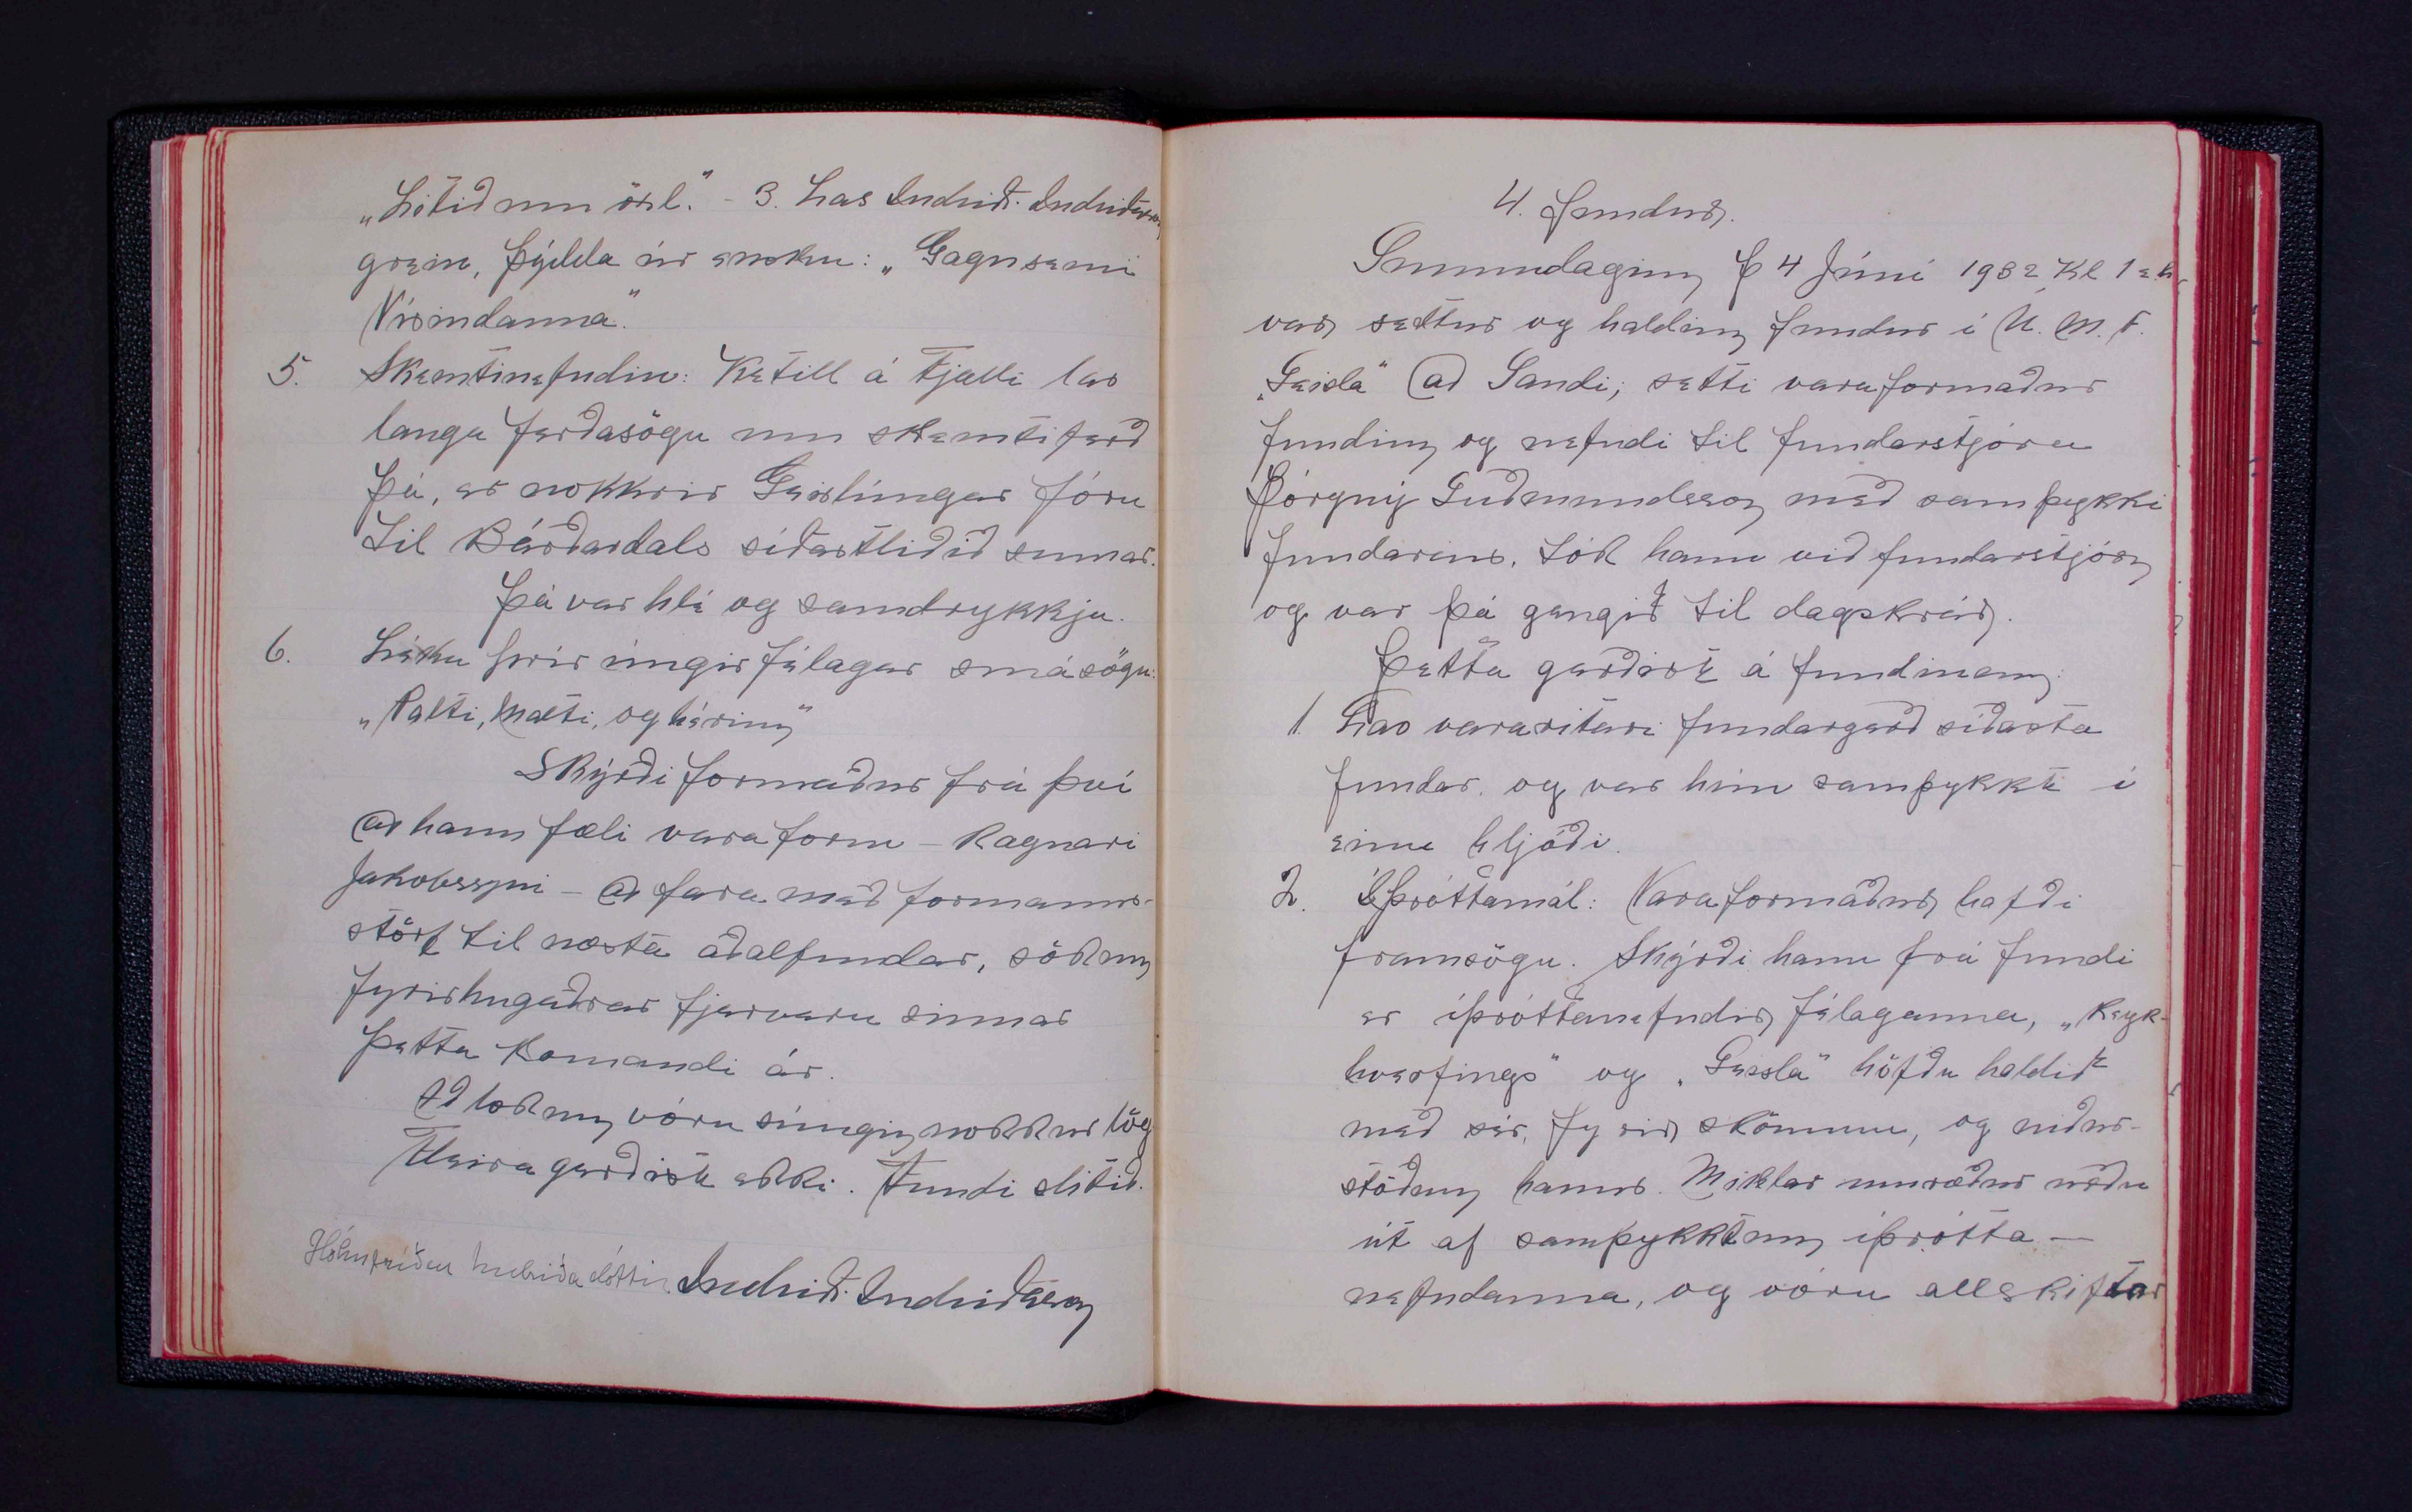 „Litið um öxl." - 3. Las Indriði Indriðason
grein, þýdda úr ensku: „Gagnsemi
Vísindanna".
5. Skemtinefndin: Ketill á Fjalli las
langa ferðasögu um skemtiferð
þá, er nokkrir Geislungar fóru
til Bárðardals síðastliðið sumar.
Þá var hlé og samdrykkja.
6. Léku þrír úngir félagar smásögu:
„Palti, Malti, og hérinn"
Skýrði formaður frá því
að hann fæli varaform - Ragnari
Jakobssyni - að fara með formanns-
störf til næsta aðalfundar, sökum
fyrirhugaðrar fjarveru sinnar
þetta komandi ár.
Að lokum vóru súngin nokkur lög
Fleira gerðist ekki. Fundi slitið.
Hólmfríður Indriðadóttir. Indriði Indriðason
4. fundur.
Sunnudaginn þ 4 Júní 1932, Kl 1 e.h.
var settur og haldinn fundur í U. M. F.
„Geisla" að Sandi; setti varaformaður
fundinn og nefndi til fundarstjóra
Þórgný Guðmundsson með samþykki
fundarins. Tók hann við fundarstjórn
og var þá gengið til dagskrár.
Þetta gerðist á fundinum:
1. Las vararitari fundargerð síðasta
fundar. og var hún samþykkt í
einu hljóði.
2. Íþróttamál: Varaformaður hafði
framsögu. Skýrði hann frá fundi
er íþróttanefndir félaganna, „Reyk-
hverfings" og „Geisla" höfðu haldið
með sér, fyrir skömmu, og niður-
stöðum hans. Miklar umræður urðu
út af samþykktum íþrótta-
nefndanna, og vóru allskiftar